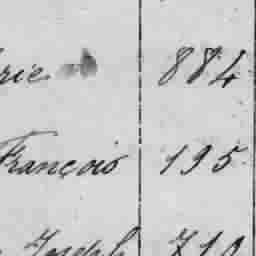 rie 884
François 195
Joseph 710